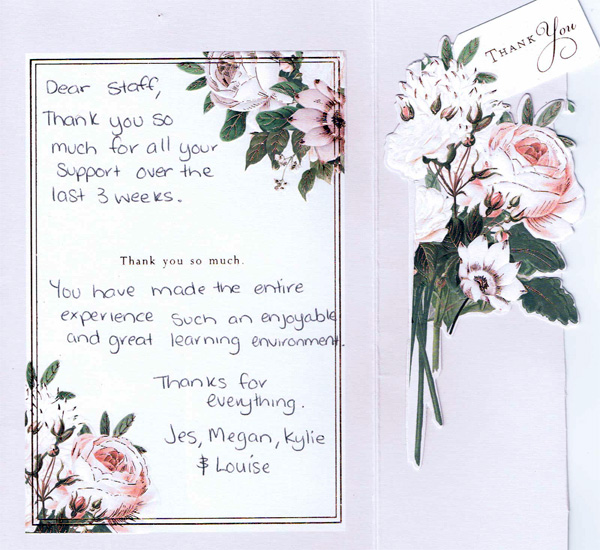 Dear Staff,
Thank you so
much for all your
Support over the
last 3 weeks.
Thank you so much.
You have made the entire
experience such an enjoyable
and great learning environment.
Thanks for
everything.
Jes, Megan, Kylie
& Louise
THANK You